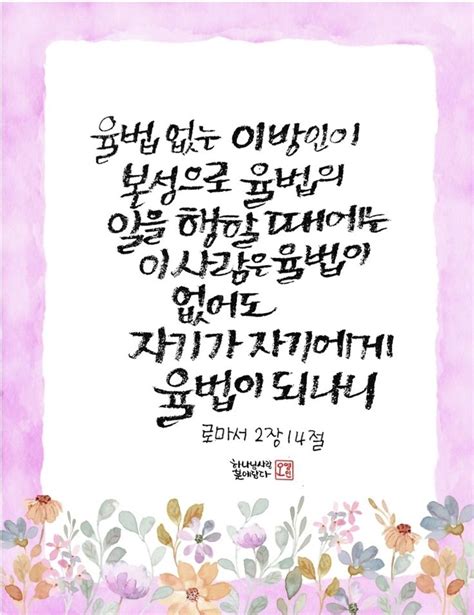 율법 없는 이방인이
본성으로 율법의
일을 행할 때에는
이 사람은 율법이
없어도
자기가 자기에게
율법이 되나니
로마서 2장 14절
하나님사랑